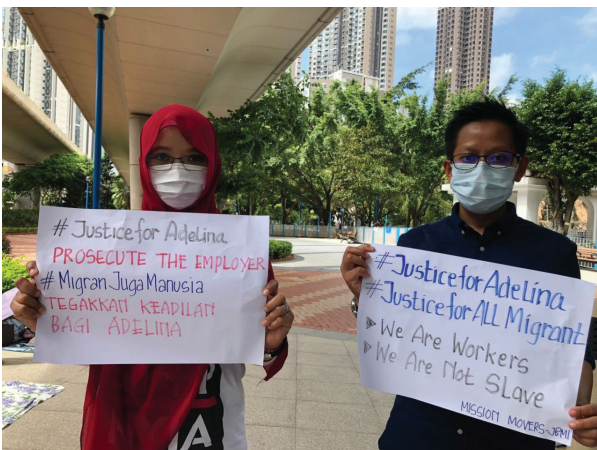 # Justice for Adelina
PROSECUTE THE EMPLOYER
# Migran Juga Manusia
TEGAKKAN KEADILAN
BAGI ADELINA
#Justice for Adelina
#Justice for ALL Migrant
We Are Workers
We Are Not Slave
MISSION MOVERS-JBMI